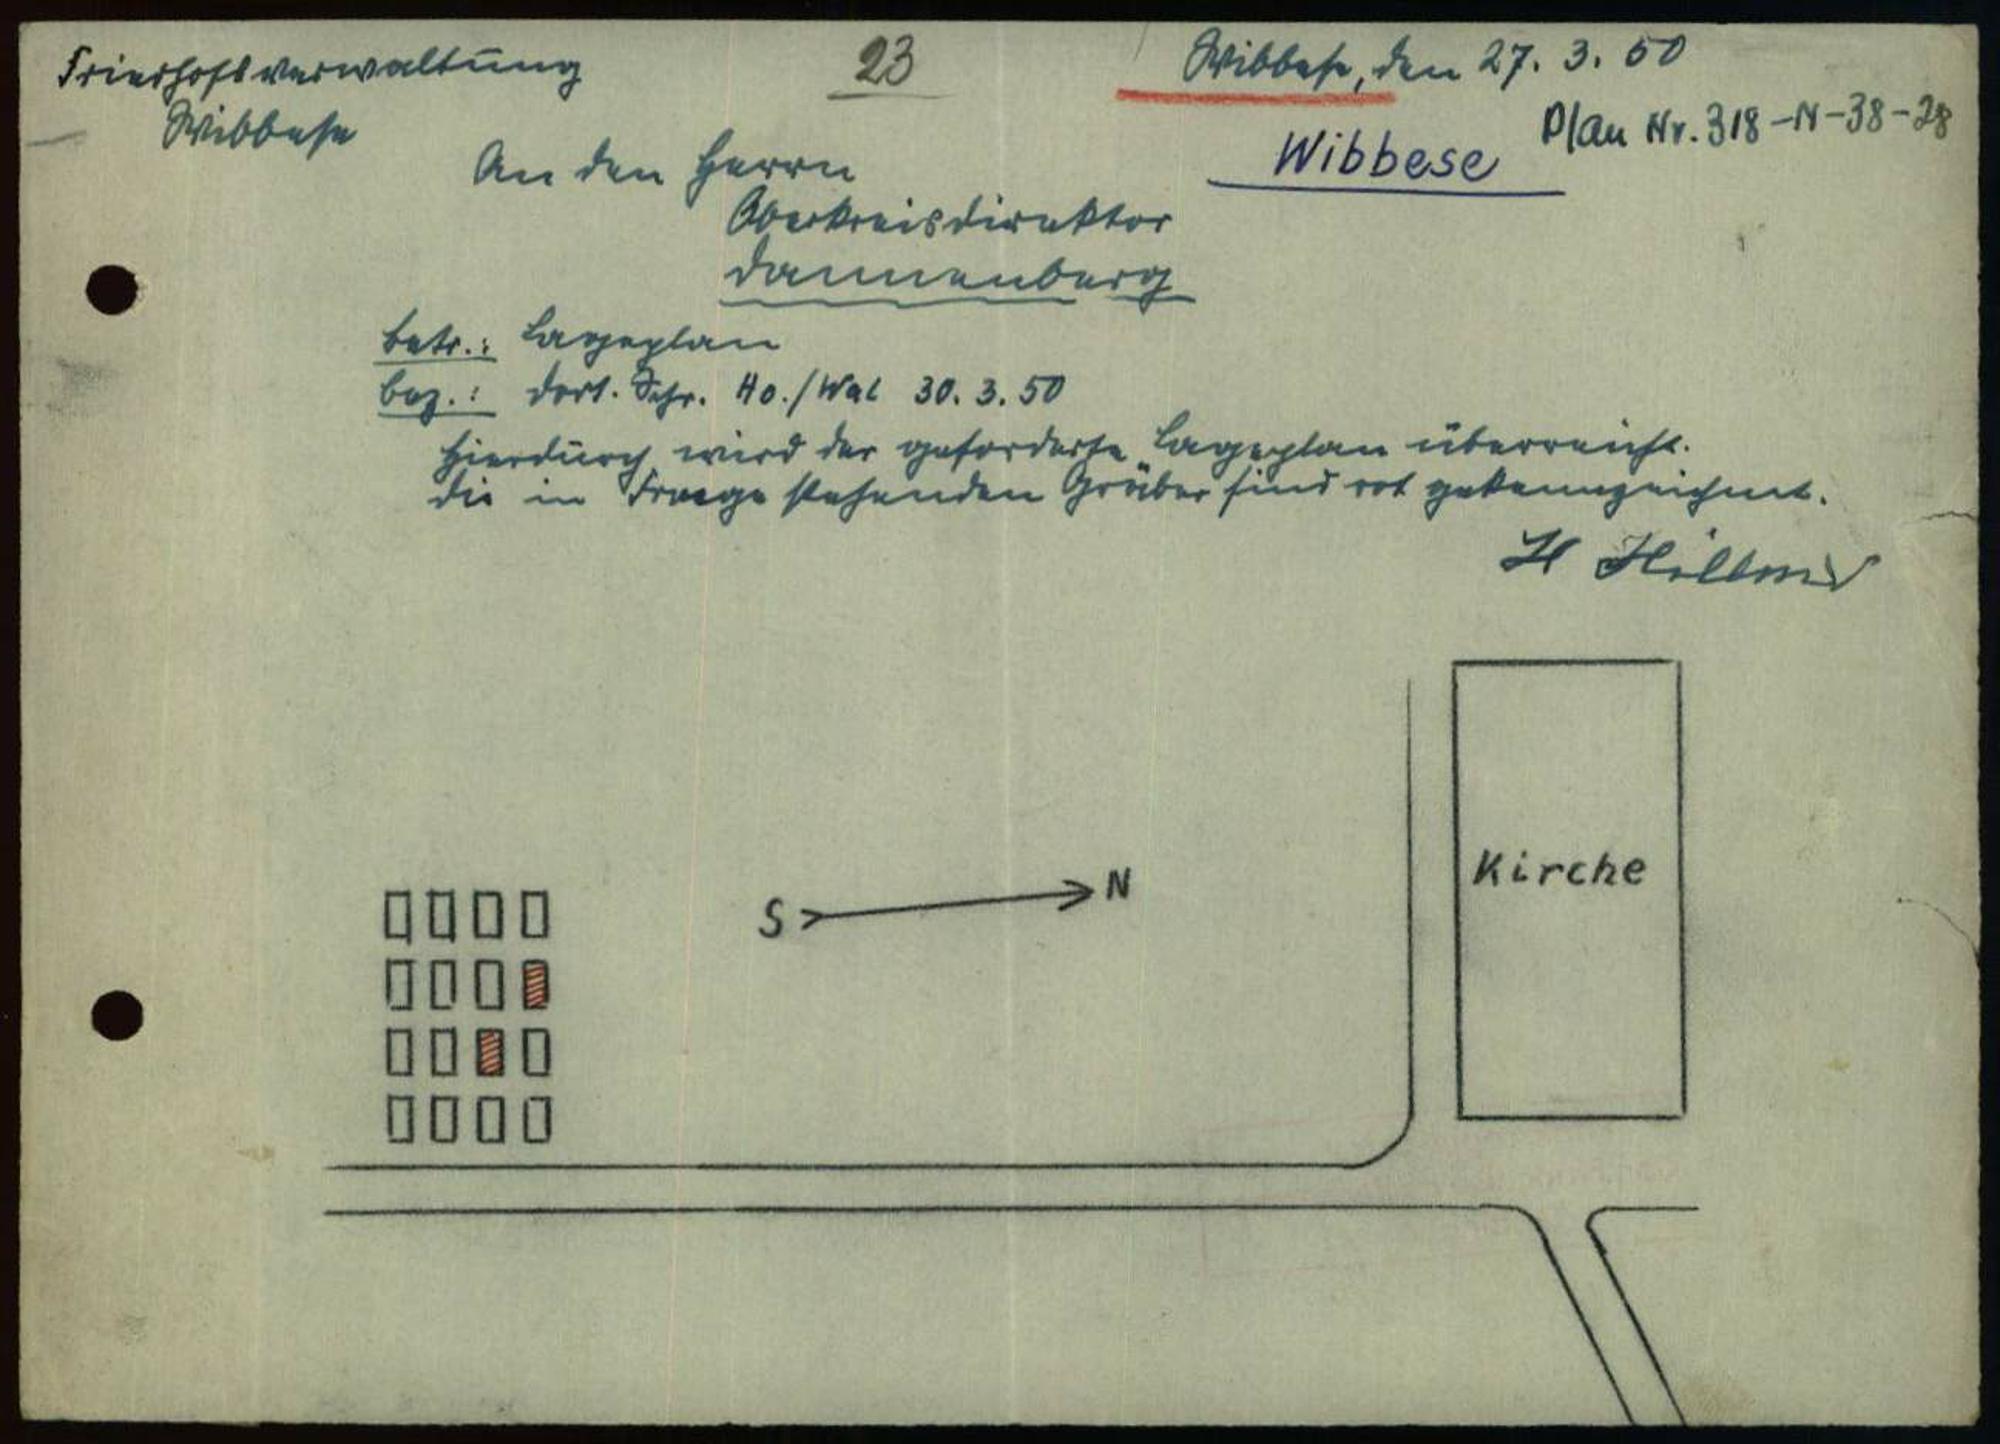 Friedhofsverwaltung
Wibbese
23
Wibbese, den 27. 3. 50
Plan Nr. 318-N-38-28
Wibbese
An den Herrn
Oberkreisdirektor
Dannenberg
Betr.: Lageplan
Bez.: Dort. Schr. Ho./Wal 30. 3. 50
Hierdurch wird der geforderte Lageplan überreicht.
Die in Frage stehenden Gräber sind rot gekennzeichnet.
H
S N
Kirche